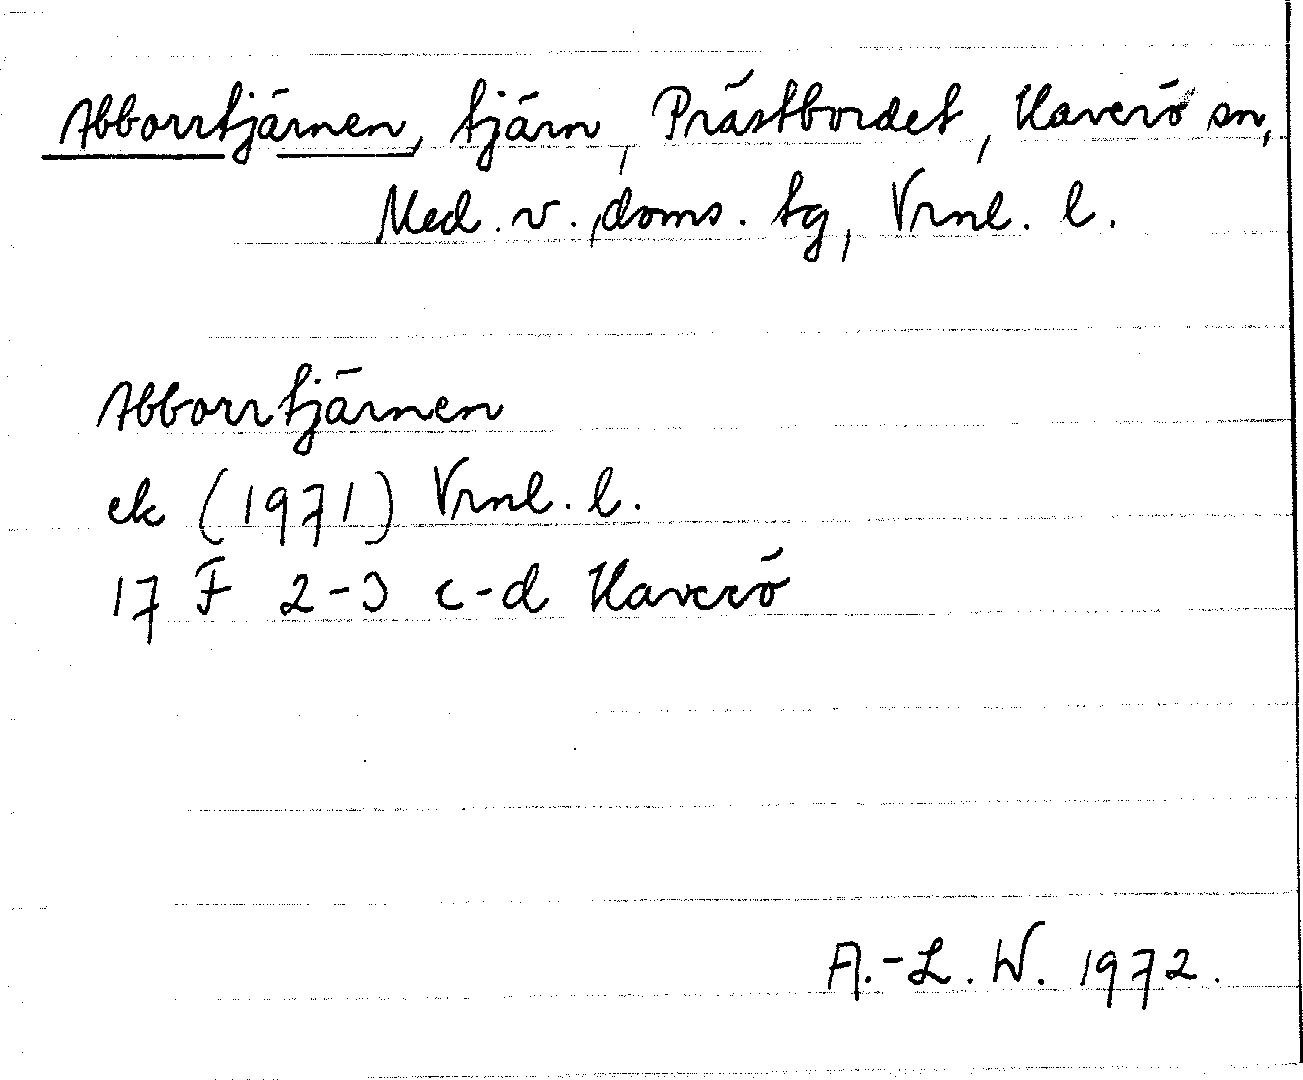 Abborrtjärnen, tjärn, Prästbordet, Haverö sn,
Med. v. doms. tg, Vrnl. l.
Abborrtjärnen
ek (1971) Vrnl. l.
17 F 2-3 c-d Haverö
A.-L. W. 1972.